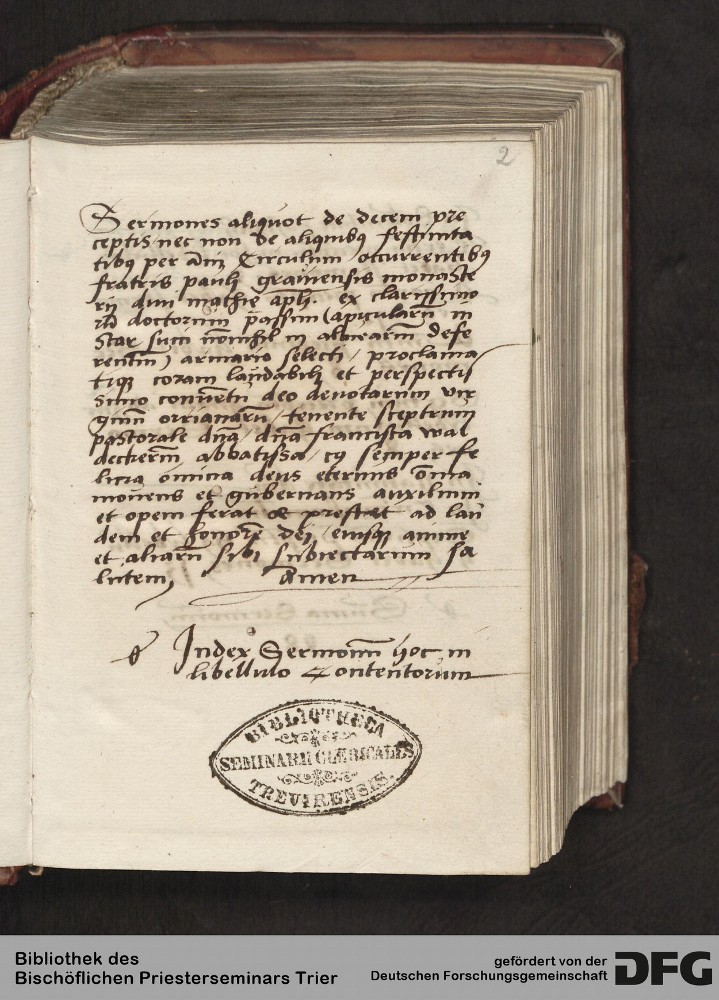 2
Sermones aliquot de decem pre
ceptis / nec non de aliquibꝯ festiuita
tibꝯ per an̄ Circulum occurrentibꝯ
fratris pauli grauensis monaste
rij diui mathie apl̄i. ex clarissimo
doctorum passim (apicularū in
star succi in aluearm̄ defe
rentiū) armario selecti / proclama
tiqꝫ coram laudabili et perspectis
simo conuētu deo deuotarum vir
ginū / tenente sceptrum
pastorale dn̄a / dn̄a francisca wal
deckerin̄ abbatissa / cꝯ semper fe
licia omnia deus eternus om̄ia
mouens et gubernans auxilium
et opem ferat & prestet ad lau
dem et honorē dei / eiusqꝫ anime
et aliarū sibi subiectarum sa
lutem, Amen
Index Sermonū hoc in
libellulo Contentorum
BIBLIOTHECA
SEMINARII CLERICALIS
TREVIRENSIS.
Bibliothek des
Bischöflichen Priesterseminars Trier
gefördert von der
Deutschen Forschungsgemeinschaft DFG